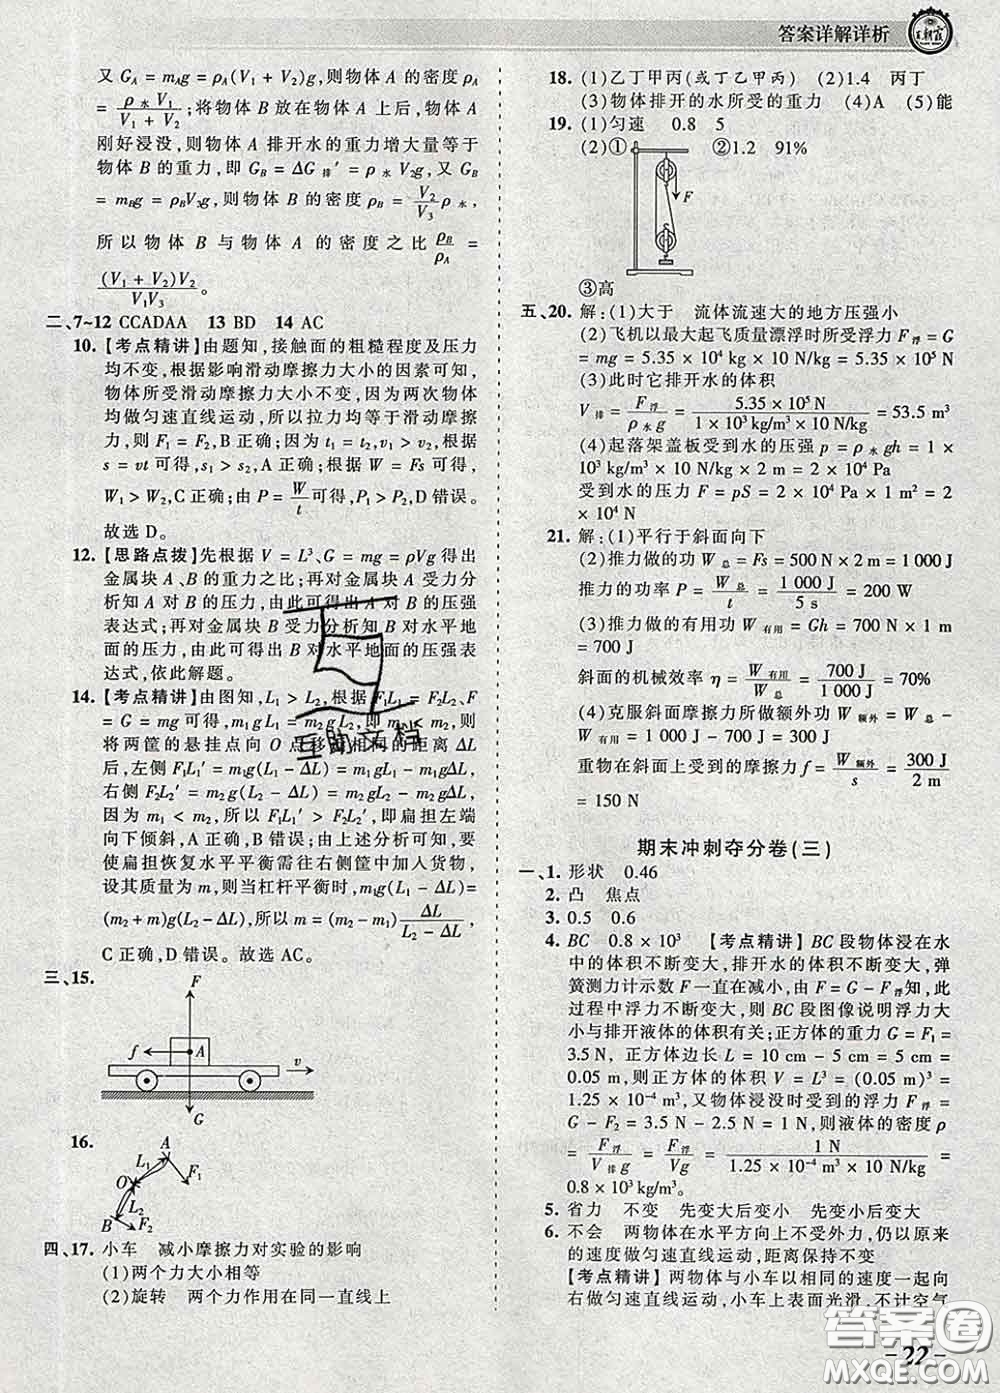 答案详解详析
王朝霞
又 G_A = m_Ag = ρ_A(V₁ + V₂)g，则物体 A 的密度 ρ_A
= ρ水V₁/(V₁ + V₂)；将物体 B 放在物体 A 上后，物体 A
刚好浸没，则物体 A 排开水的重力增大量等于
物体 B 的重力，即 G_B = ΔG排′ = ρ水V₂g，又 G_B
= m_Bg = ρ_BV₃g，则物体 B 的密度 ρ_B = (V₂/V₃)ρ水，
所以物体 B 与物体 A 的密度之比 ρ_B/ρ_A =
(V₁ + V₂)V₂/(V₁V₃)。
二、7~12 CCADAA 13 BD 14 AC
10.【考点精讲】由题知，接触面的粗糙程度及压力
均不变，根据影响滑动摩擦力大小的因素可知，
物体所受滑动摩擦力大小不变，因为两次物体
均做匀速直线运动，所以拉力均等于滑动摩擦
力，则 F₁ = F₂，B 正确；因为 t₁ = t₂，v₁ > v₂，根据
s = vt 可得，s₁ > s₂，A 正确；根据 W = Fs 可得，
W₁ > W₂，C 正确；由 P = W/t 可得，P₁ > P₂，D 错误。
故选 D。
12.【思路点拨】先根据 V = L³、G = mg = ρVg 得出
金属块 A、B 的重力之比；再对金属块 A 受力分
析知 A 对 B 的压力，由此可得出 A 对 B 的压强
表达式；再对金属块 B 受力分析知 B 对水平地
面的压力，由此可得出 B 对水平地面的压强表
达式，依此解题。
14.【考点精讲】由图知，L₁ > L₂，根据 F₁L₁ = F₂L₂、F
= G = mg 可得，m₁gL₁ = m₂gL₂，即 m₁ < m₂，则
将两筐的悬挂点向 O 点移动相同的距离 ΔL
后，左侧 F₁L₁′ = m₁g(L₁ − ΔL) = m₁gL₁ − m₁gΔL，
右侧 F₂L₂′ = m₂g(L₂ − ΔL) = m₂gL₂ − m₂gΔL，因
为 m₁ < m₂，所以 F₁L₁′ > F₂L₂′，即扁担左端
向下倾斜，A 正确，B 错误；由上述分析可知，要
使扁担恢复水平平衡需往右侧筐中加入货物，
设其质量为 m，则当杠杆平衡时，m₁g(L₁ − ΔL)
= (m₂ + m)g(L₂ − ΔL)，所以 m = (m₂ − m₁)ΔL/(L₂ − ΔL)，
C 正确，D 错误。故选 AC。
三、15.
F
f A v
G
16.
A
L₁
O F₁
L₂
B F₂
四、17. 小车 减小摩擦力对实验的影响
(1)两个力大小相等
(2)旋转 两个力作用在同一直线上
18. (1)乙丁甲丙(或丁乙甲丙) (2)1.4 丙丁
(3)物体排开的水所受的重力 (4)A (5)能
19. (1)匀速 0.8 5
(2)① ②1.2 91%
F
③高
五、20. 解：(1)大于 流体流速大的地方压强小
(2)飞机以最大起飞质量漂浮时所受浮力 F浮 = G
= mg = 5.35 × 10⁴ kg × 10 N/kg = 5.35 × 10⁵ N
(3)此时它排开水的体积
V排 = F浮/(ρ水g) = 5.35 × 10⁵ N/(1 × 10³ kg/m³ × 10 N/kg) = 53.5 m³
(4)起落架盖板受到水的压强 p = ρ水gh = 1 ×
10³ kg/m³ × 10 N/kg × 2 m = 2 × 10⁴ Pa
受到水的压力 F = pS = 2 × 10⁴ Pa × 1 m² = 2 ×
10⁴ N
21. 解：(1)平行于斜面向下
(2)推力做的功 W总 = Fs = 500 N × 2 m = 1 000 J
推力的功率 P = W总/t = 1 000 J/5 s = 200 W
(3)推力做的有用功 W有用 = Gh = 700 N × 1 m
= 700 J
斜面的机械效率 η = W有用/W总 = 700 J/1 000 J = 70%
(4)克服斜面摩擦力所做额外功 W额外 = W总 −
W有用 = 1 000 J − 700 J = 300 J
重物在斜面上受到的摩擦力 f = W额外/s = 300 J/2 m
= 150 N
期末冲刺夺分卷(三)
一、1. 形状 0.46
2. 凸 焦点
3. 0.5 0.6
4. BC 0.8 × 10³ 【考点精讲】BC 段物体浸在水
中的体积不断变大，排开水的体积不断变大，弹
簧测力计示数 F 一直在减小，由 F = G − F浮知，此
过程中浮力不断变大，则 BC 段图像说明浮力大
小与排开液体的体积有关；正方体的重力 G = F₁ =
3.5 N，正方体边长 L = 10 cm − 5 cm = 5 cm =
0.05 m，则正方体的体积 V = L³ = (0.05 m)³ =
1.25 × 10⁻⁴ m³，又物体浸没时受到的浮力 F浮 =
G − F₂ = 3.5 N − 2.5 N = 1 N，则液体的密度 ρ
= F浮/(V排g) = F浮/(Vg) = 1 N/(1.25 × 10⁻⁴ m³ × 10 N/kg) =
0.8 × 10³ kg/m³。
5. 省力 不变 先变大后变小 先变小后变大
6. 不会 两物体在水平方向上不受外力，仍以原来
的速度做匀速直线运动，距离保持不变
【考点精讲】两物体与小车以相同的速度一起向
右做匀速直线运动，小车上表面光滑，不计空气
互助文档
答案圈
MXQE.COM
- 22 -